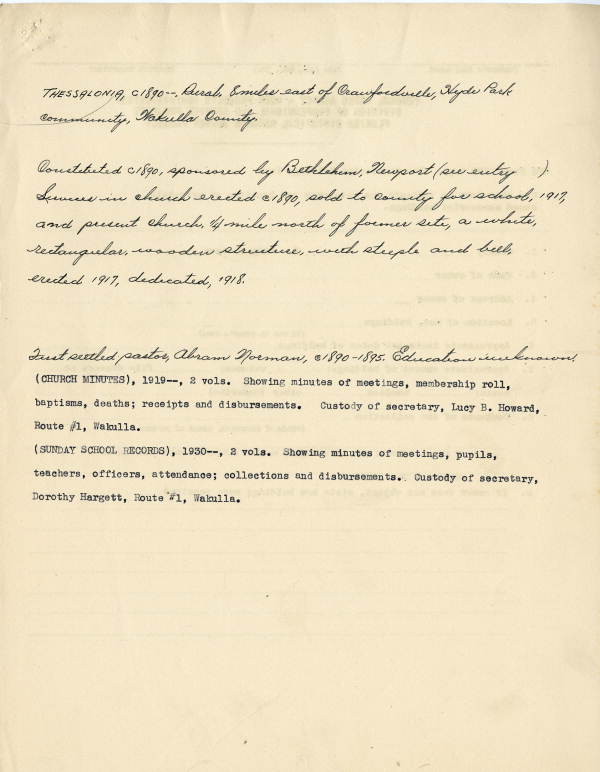 THESSALONIA, c1890--. Rural, 8 miles east of Crawfordville, Hyde Park
community, Wakulla County.
Constituted c1890, sponsored by Bethlehem, Newport (see entry ).
Services in church erected c1890, sold to county for school, 1917,
and present church, 1/4 mile north of former site, a white,
rectangular, wooden structure, with steeple and bell,
erected 1917, dedicated, 1918.
First settled pastor, Abram Norman, c1890-1895. Education unknown.
(CHURCH MINUTES), 1919--, 2 vols. Showing minutes of meetings, membership roll,
baptisms, deaths; receipts and disbursements. Custody of secretary, Lucy B. Howard,
Route #1, Wakulla.
(SUNDAY SCHOOL RECORDS), 1930--, 2 vols. Showing minutes of meetings, pupils,
teachers, officers, attendance; collections and disbursements. Custody of secretary,
Dorothy Hargett, Route #1, Wakulla.